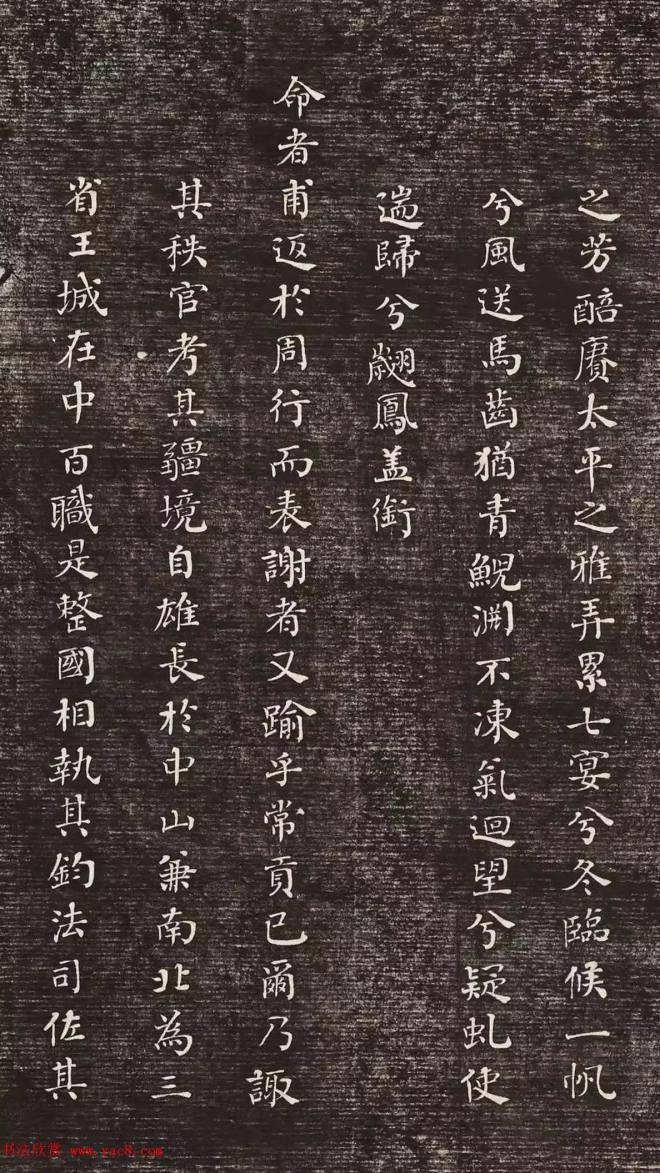 之芳醅賡太平之雅弄累七宴兮冬臨候一帆
兮風送馬齒猶青鯢渊不凍氣迴朢兮疑虬使
遄歸兮翽鳳盖銜
命者甫返於周行而表謝者又踰乎常貢已爾乃諏
其秩官考其疆境自雄長於中山兼南北為三
省王城在中百職是整國相執其鈞法司佐其
书法欣赏 www.yac8.com